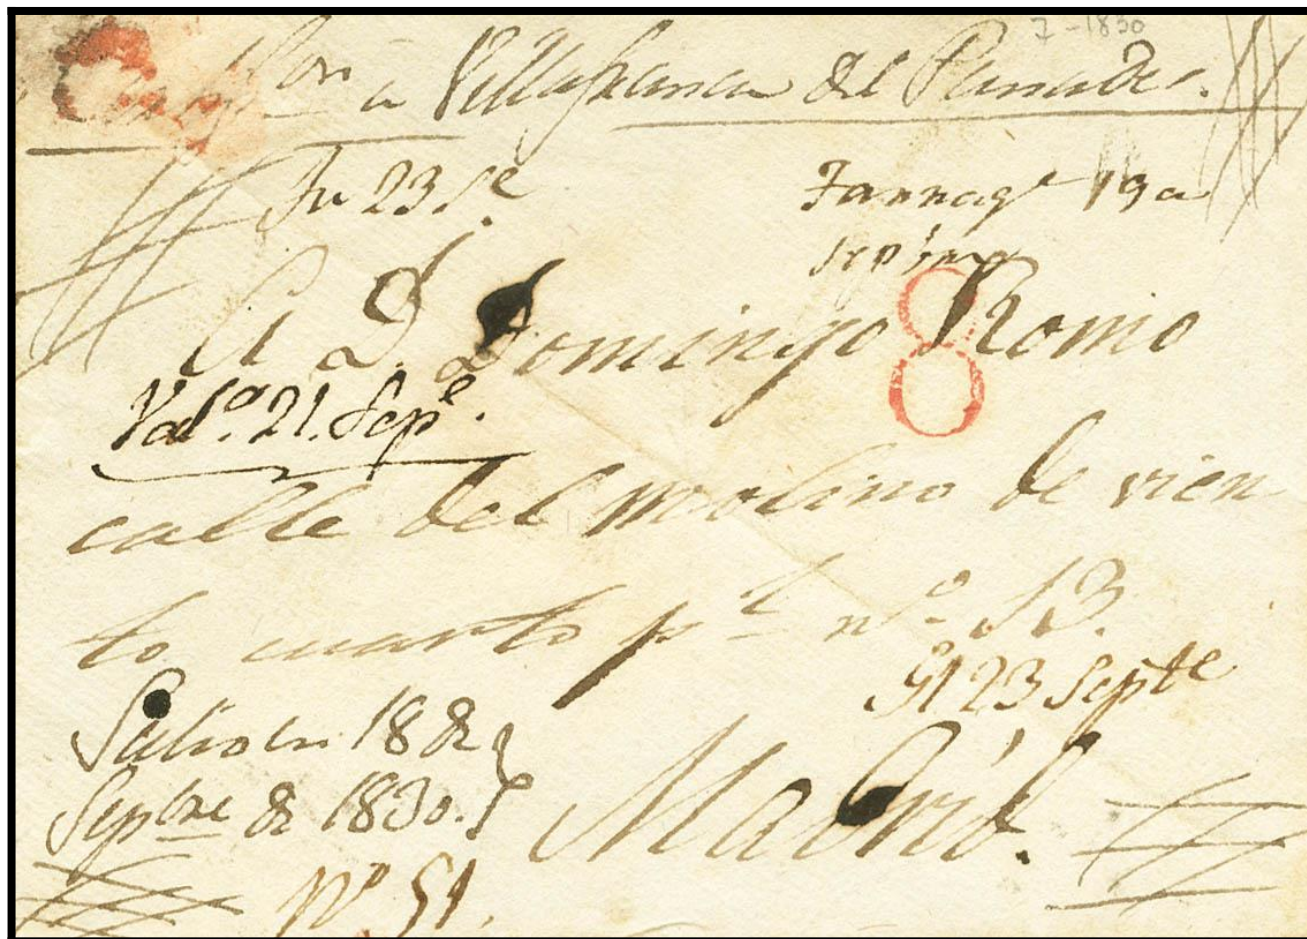 7-1830
à Villafranca del Panades.
Fu 23 Se.
Tarrag.ª 19 a
sepbre
8
A D. Domingo Romo
Val.ª 21. Sep.e
calle del molino de vien
to cuarto p.l n.º 13.
23 Septe
Salio en 18 de
Sepbre de 1830.
Madrid.
Nº 51.